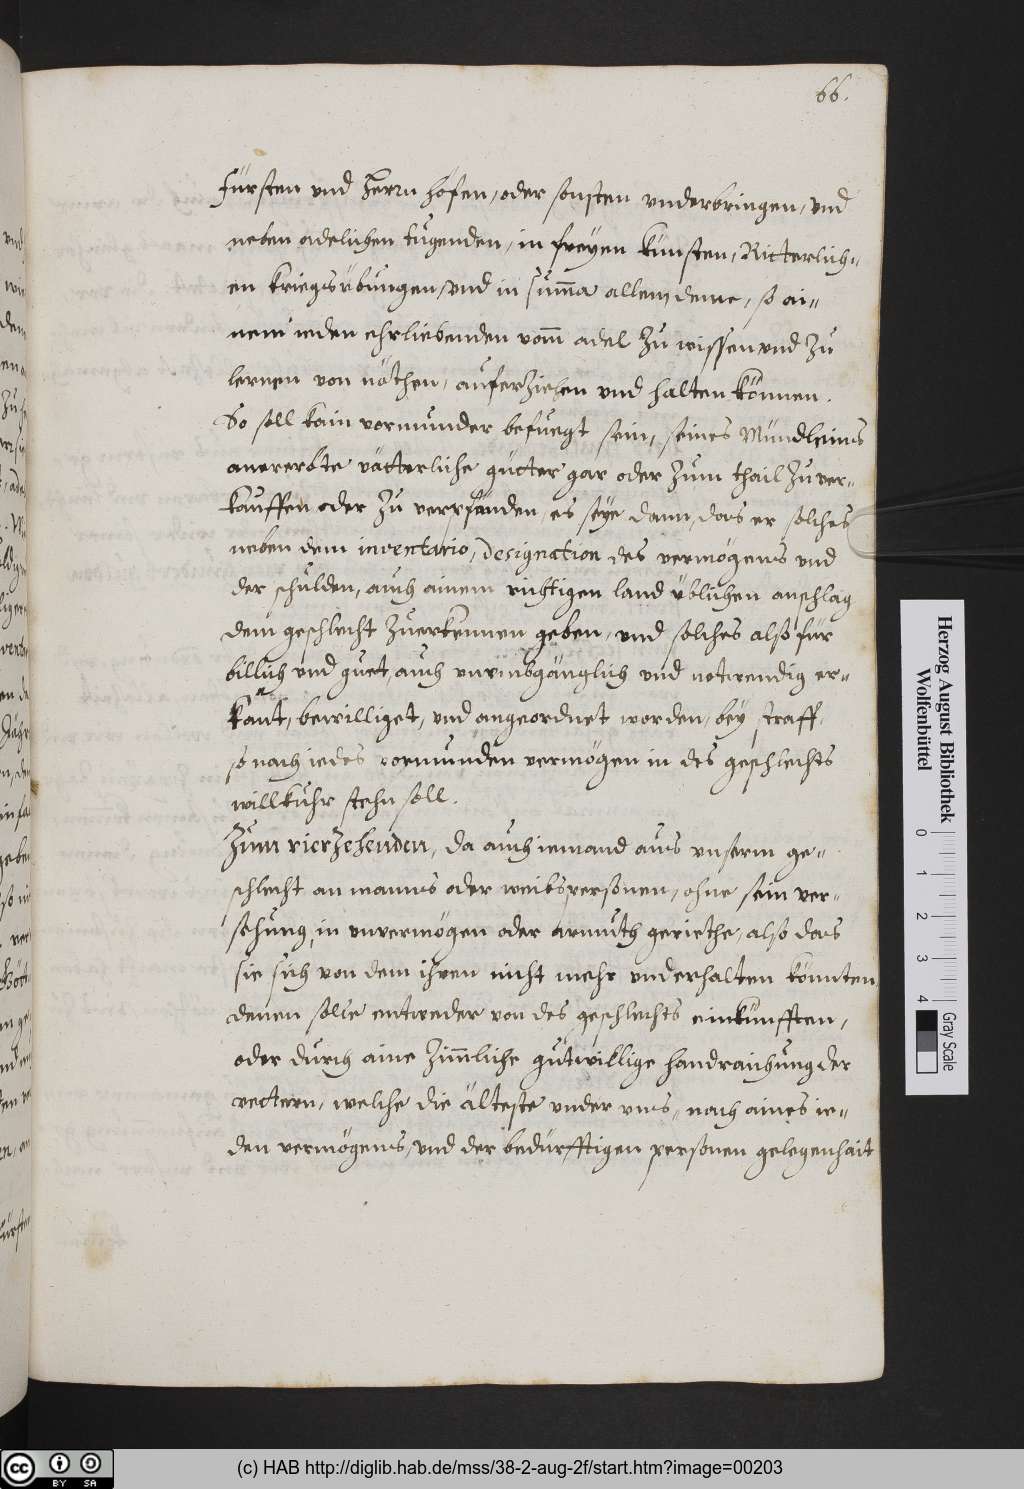 66.
Fürsten vnd Herrn höfen, oder sonsten vnderbringen, vnd
neben adelichen tugenden, in freyen künsten, Ritterlich-
en kriegsübungen, vnd in summa allem deme, so ai-
nem ieden ehrliebenden vom̄ adel zu wissen vnd zu
lernen von nöthen, auferziehen vnd halten können.
So soll kain vormunder befuegt sein, seines Mündleins
anererbte vätterliche güetter gar oder zum thail zu ver-
kauffen oder zu verpfänden, es seye dann, das er solches
neben dem inventario, Designation des vermögens vnd
der schulden, auch ainem richtigen land üblichen anschlag
dem geschlecht zuerkennen geben, vnd solches also für
billich vnd guet, auch vnumbgänglich vnd notwendig er-
kant, bewilliget, vnd angeordnet worden, bey straff,
so nach iedes vormunden vermögen in des geschlechts
willkuhr stehn soll.
Zum vierzehenden, da auch iemand aus vnserm ge-
schlecht an manns oder weibspersonen, ohne sein ver-
sehung, in vnvermögen oder armuth geriethe, also das
sie sich von dem ihren nicht mehr vnderhalten könnten,
denen solle entweder von des geschlechts einkünfften,
oder durch aine zim̄liche gutwillige handraichung der
vettern, welche die älteste vnder vns, nach aines ie-
den vermögens, vnd der bedürfftigen personen gelegenhait
Herzog August Bibliothek
Wolfenbüttel
0 1 2 3 4
Gray Scale
(c) HAB http://diglib.hab.de/mss/38-2-aug-2f/start.htm?image=00203
cc BY SA